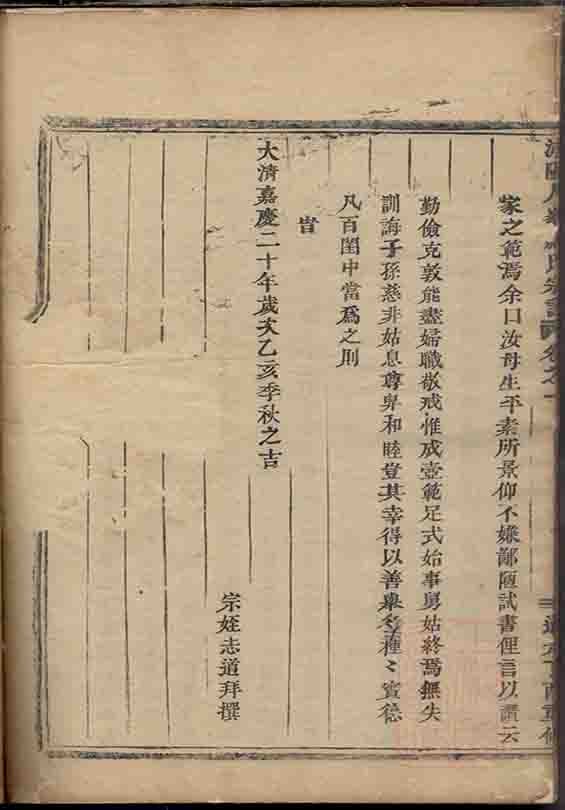 家之範焉余曰汝母生平素所景仰不嫌鄙陋試書俚言以讚云
勤儉克敦能盡婦職敬戒惟成壼範足式始事舅姑終焉無失
訓誨子孫慈非姑息尊卑和睦豈其幸得以善興名種〻實德
凡百閨中當爲之則
旹
大清嘉慶二十年歲次乙亥季秋之吉
宗姪志道拜撰